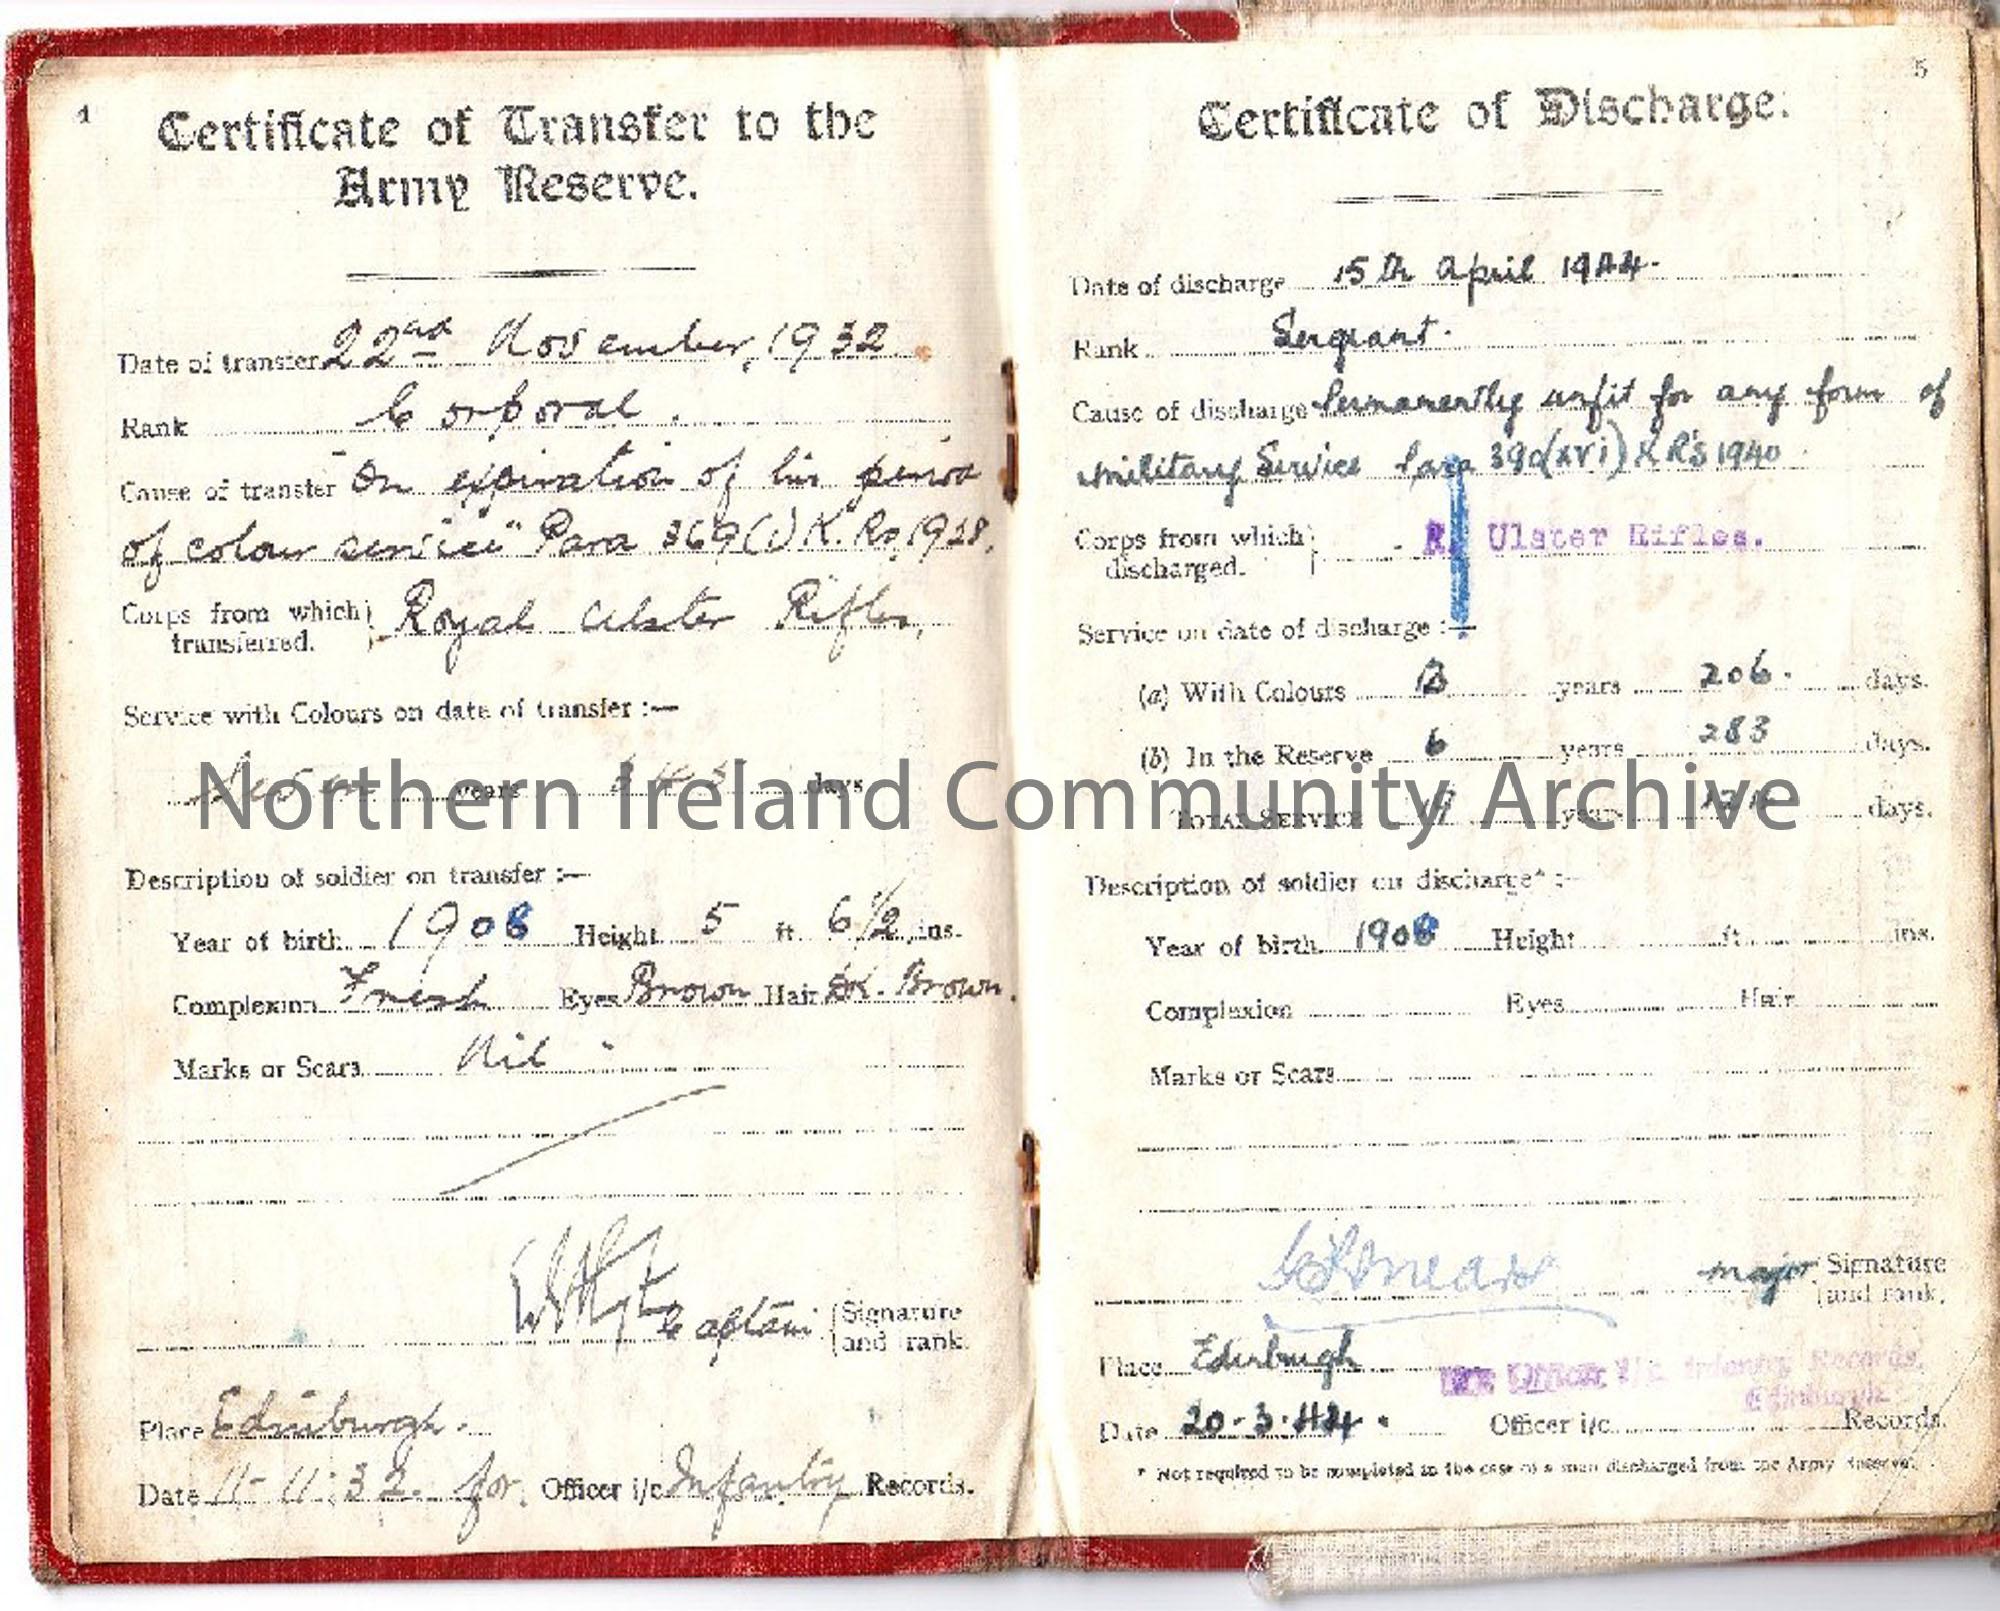 4
Certificate of Transfer to the
Army Reserve.
Date of transfer 22nd November, 1932
Rank Corporal.
Cause of transfer "On expiration of his period
of colour service" Para 369(i) K. Rs, 1928.
Corps from which
transferred. Royal Ulster Rifles,
Service with Colours on date of transfer :—
Seven years days
Description of soldier on transfer :—
Year of birth 1908 Height 5 ft. 6 1/2 ins.
Complexion Fresh Eyes Brown Hair Dk. Brown.
Marks or Scars Nil
Captain Signature
and rank.
Place Edinburgh.
Date 11-11-32. for. Officer i/c Infantry Records.
5
Certificate of Discharge.
Date of discharge 15th April 1944.
Rank Sergeant.
Cause of discharge Permanently unfit for any form of
Military Service Para 390(xvi) K R's 1940
Corps from which
discharged. R. Ulster Rifles.
Service on date of discharge :—
(a) With Colours years 206. days.
(b) In the Reserve 6 years 283 days.
Total Service years days.
Description of soldier on discharge* :—
Year of birth 1908 Height ft. ins.
Complexion Eyes Hair
Marks or Scars
Major Signature
and rank.
Place Edinburgh
Officer i/c Infantry Records,
Edinburgh
Date 20.3.44. Officer i/c Records.
* Not required to be completed in the case of a man discharged from the Army Reserve.
Northern Ireland Community Archive